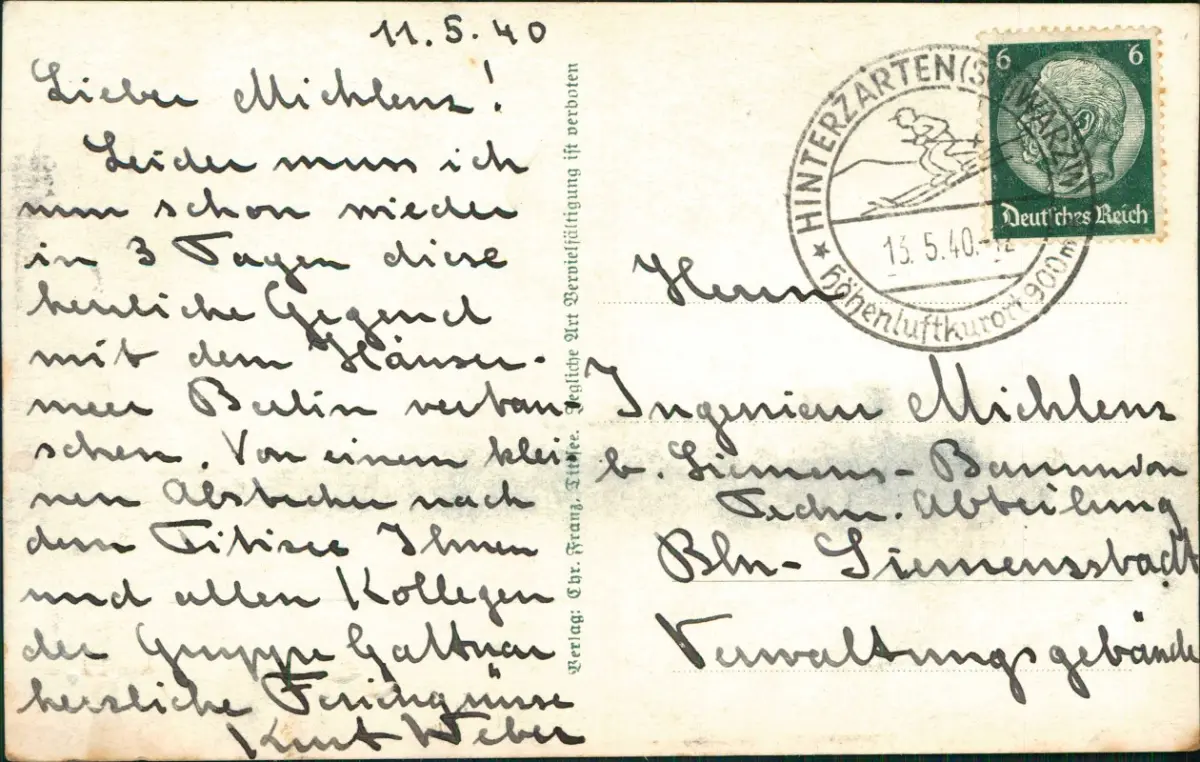 11.5.40
Lieber Michlenz!
Leider muss ich
nun schon wieder
in 3 Tagen diese
herrliche Gegend
mit dem Häuser-
meer Berlin vertau-
schen. Von einem klei-
nen Abstecher nach
dem Titisee Ihnen
und allen Kollegen
der Gruppe
herzliche Feriengrüsse
Kurt Weber
Verlag: Chr. Franz, Titisee. Jegliche Art Vervielfältigung ist verboten
6 6
Deutsches Reich
HINTERZARTEN (SCHWARZW
13.5.40.-12
Höhenluftkurort 900m
Herrn
Ingenieur Michlenz
b. Siemens-Bauunion
Techn. Abteilung
Bln-Siemensstadt
Verwaltungsgebäude